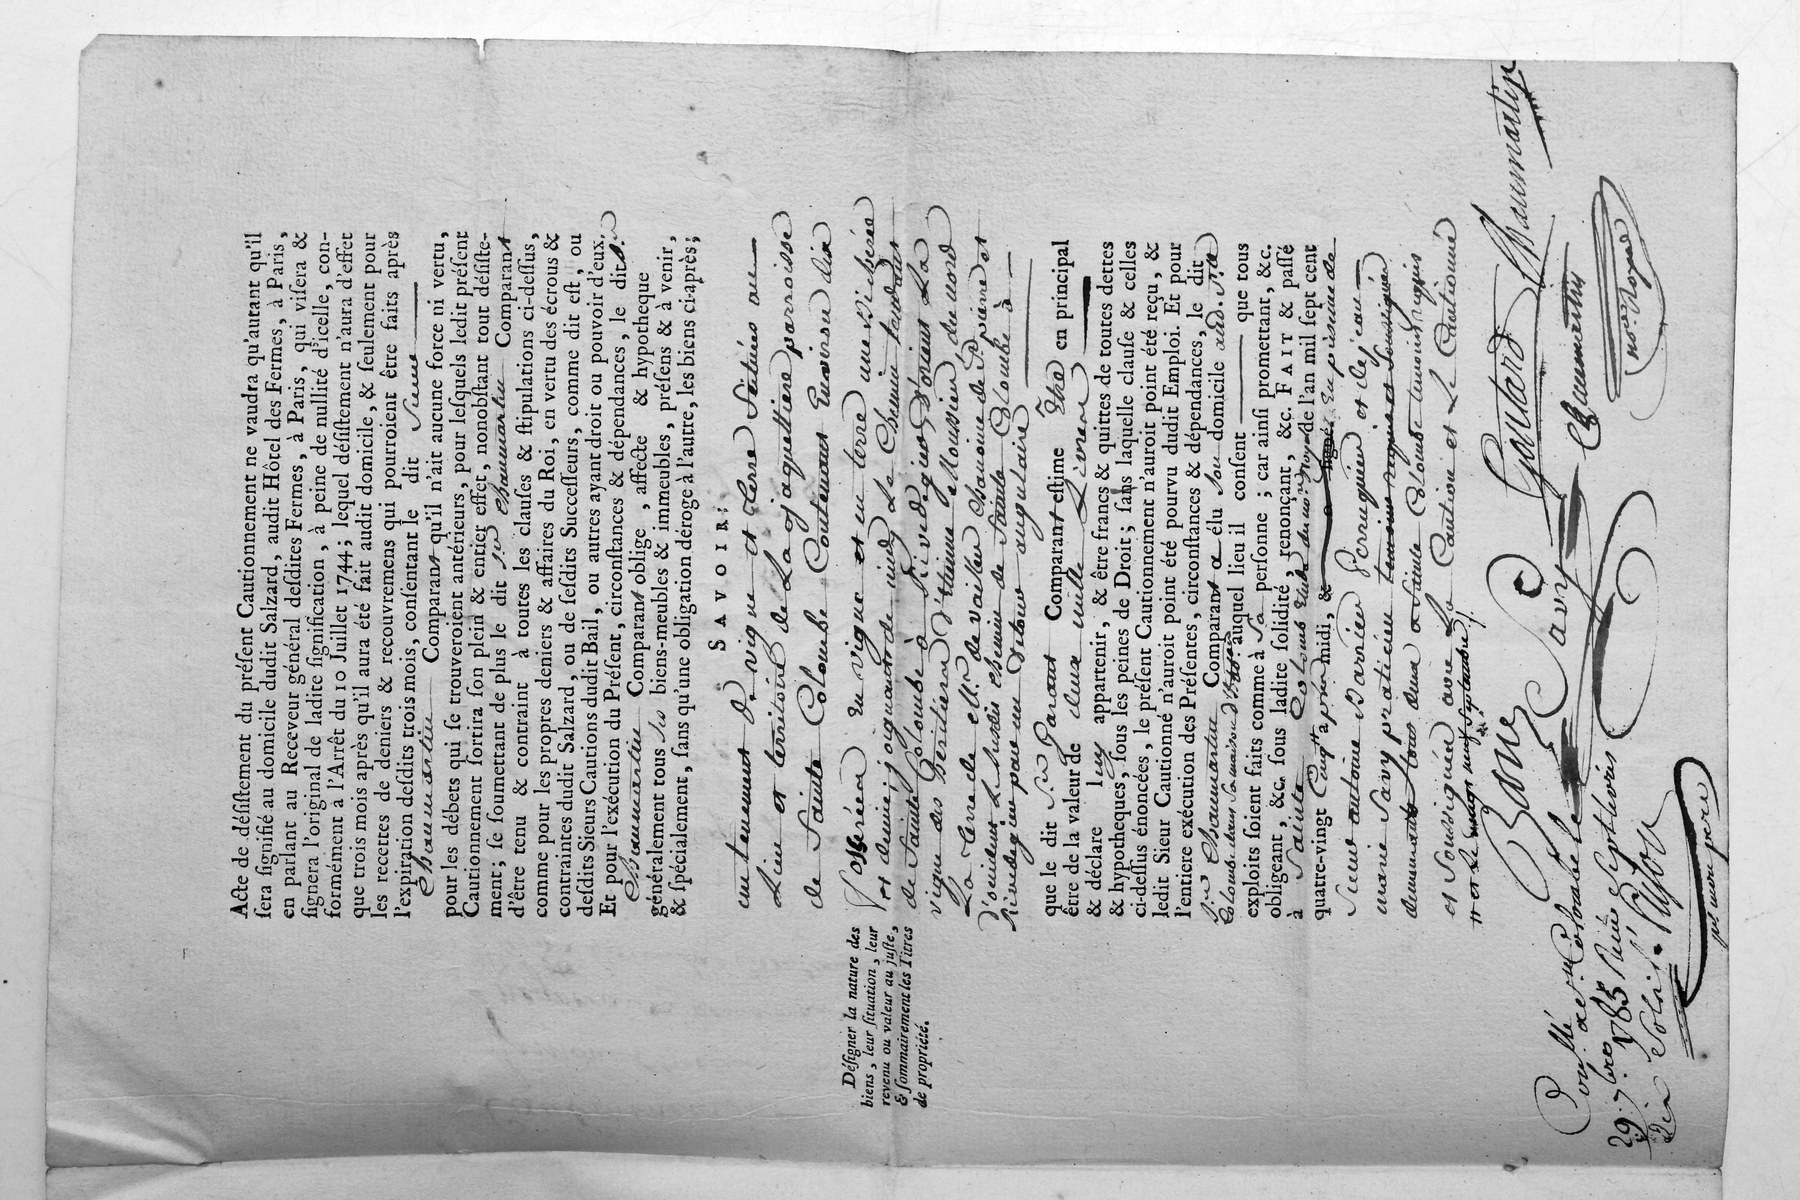 Acte de désistement du présent Cautionnement ne vaudra qu'autant qu'il
sera signifié au domicile dudit Salzard, audit Hôtel des Fermes, à Paris,
en parlant au Receveur général desdites Fermes, à Paris, qui visera &
signera l'original de ladite signification, à peine de nullité d'icelle, con-
formément à l'Arrêt du 10 Juillet 1744; lequel désistement n'aura d'effet
que trois mois après qu'il aura été fait audit domicile, & seulement pour
les recettes de deniers & recouvremens qui pourroient être faits après
l'expiration desdits trois mois, consentant le dit Sieur
Chaumartin Comparant qu'il n'ait aucune force ni vertu,
pour les débets qui se trouveroient antérieurs, pour lesquels ledit présent
Cautionnement sortira son plein & entier effet, nonobstant tout désiste-
ment; se soumettant de plus le dit Sr Chaumartin Comparant
d'être tenu & contraint à toutes les clauses & stipulations ci-dessus,
comme pour les propres deniers & affaires du Roi, en vertu des écrous &
contraintes dudit Salzard, ou de sesdits Successeurs, comme dit est, ou
desdits Sieurs Cautions dudit Bail, ou autres ayant droit ou pouvoir d'eux.
Et pour l'exécution du Présent, circonstances & dépendances, le dit Sr
Chaumartin Comparant oblige, affecte & hypotheque
généralement tous ses biens-meubles & immeubles, présens & à venir,
& spécialement, sans qu'une obligation déroge à l'autre, les biens ci-après;
SAVOIR:
Désigner la nature des
biens, leur situation, leur
revenu ou valeur au juste,
& sommairement les Titres
de propriété.
un tenement de vigne et terre situées au
lieu et territoire de la jaquetiere parroisse
de Sainte Colombe Contenant Environ dix
en vigne et en terre une Bicherée
et demie; joignant de midy le Chemin tendant
de Sainte Colombe à d'orient la
vigne des heritiers d'Etienne Moussier du nord
La terre de Chanoine de St pierre et
d'occident le susdit chemin de Sainte Colombe à
par un Detour angulaire
que le dit Sr Comparant estime Etre en principal
être de la valeur de deux mille Livres
& déclare luy appartenir, & être francs & quittes de toutes dettes
& hypotheques, sous les peines de Droit; sans laquelle clause & celles
ci-dessus énoncées, le présent Cautionnement n'auroit point été reçu, &
ledit Sieur Cautionné n'auroit point été pourvu dudit Emploi. Et pour
l'entiere exécution des Présentes, circonstances & dépendances, le dit
Sr Chaumartin Comparant a élu son domicile
auquel lieu il consent que tous
exploits soient faits comme à Sa personne; car ainsi promettant, &c.
obligeant, &c. sous ladite solidité, renonçant, &c. FAIT & passé
à Sainte Colombe
quatre-vingt Cinq après midi, de l'an mil sept cent
Sieur antoine Barrier Perruquier et de jean
marie Savy praticien
a Sainte Colombe temoins requis
et soussignés avec La Caution et Le Cautionné
Savy Goutard Chaumartin
Chaumartin
Controllé